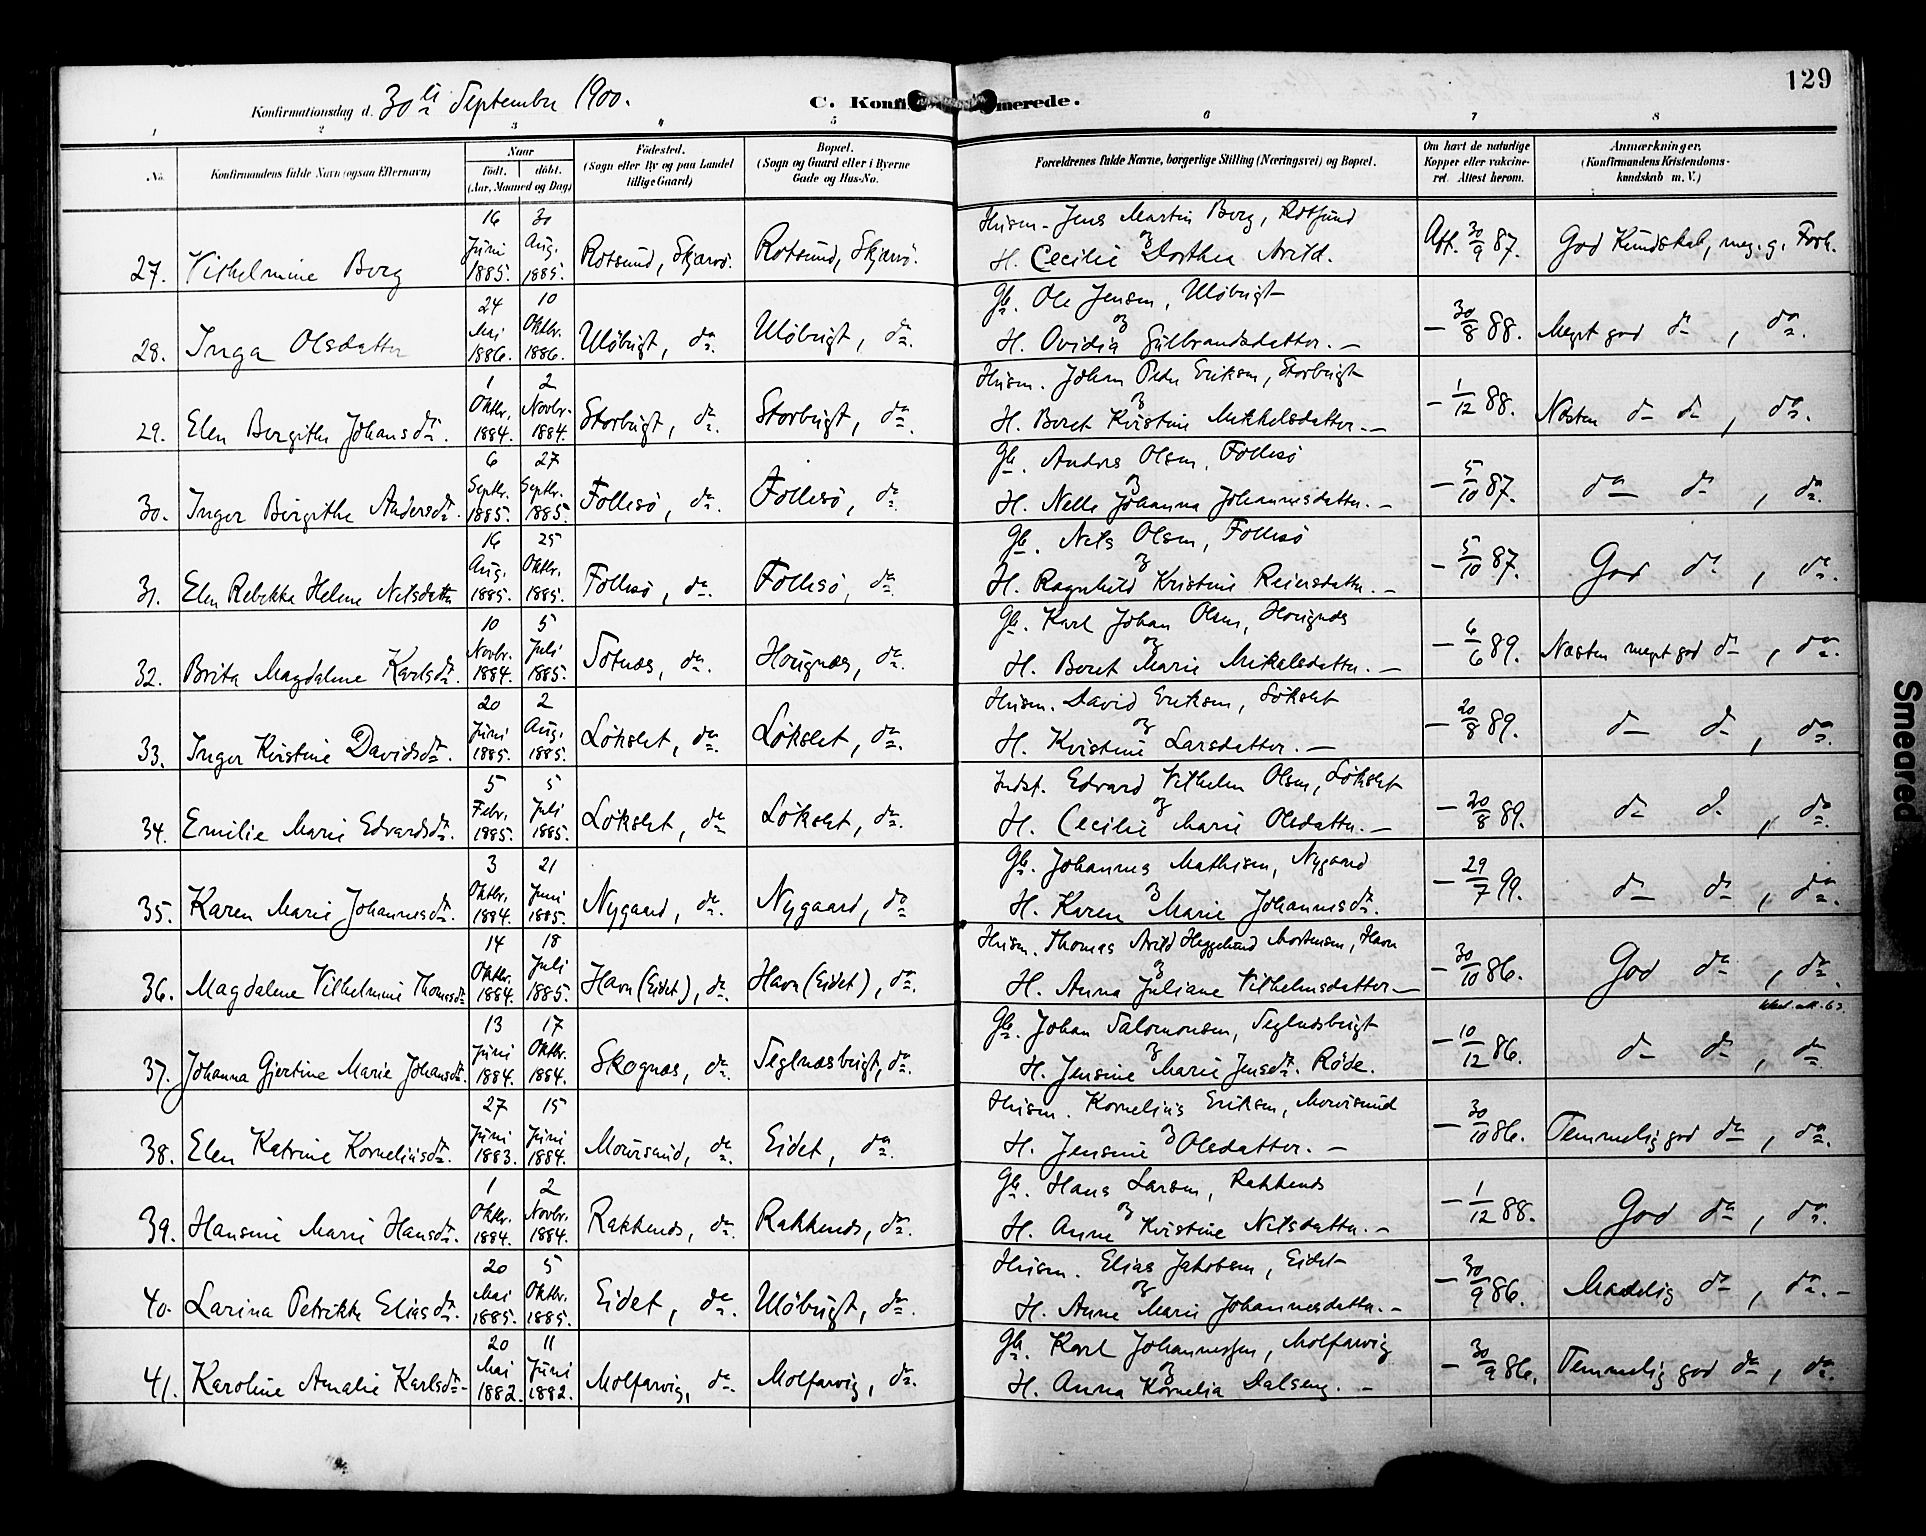 129
Konfirmationsdag d. 30te September 1900.
C. Konfi merede.
1 2 3 4 5 6 7 8
No. Konfirmandens fulde Navn (ogsaa Efternavn) Naar født. døbt. (Aar, Maaned og Dag) Fødested. (Sogn eller By og paa Landet tillige Gaard) Bopæl. (Sogn og Gaard eller i Byerne Gade og Hus-No. Forældrenes fulde Navne, borgerlige Stilling (Næringsvei) og Bopæl. Om havt de naturlige Kopper eller vakcineret. Attest herom. Anmærkninger. (Konfirmandens Kristendomskundskab m. V.)
27. Vilhelmine Berg 16 Juni 1885. 30 Aug. 1885. Rotsund, Skjærvö. Rotsund, Skjærvö. Husm. Jens Martin Berg, Rotsund og H. Cecilie Dorthea Arild. Att. 30/9 87. God Kundskab, meg. g. Forh.
28. Inga Olsdatter 24 Mai 1886. 10 Oktbr. 1886. Uløbugt, do. Uløbugt, do. Gb. Ole Jensen, Uløbugt og H. Ovidia Gulbrandsdatter. – – 30/8 88. Meget god do, do.
29. Elen Bergithe Johansdtr. 1 Oktbr. 1884. 2 Novbr. 1884. Storbugt, do. Storbugt, do. Husm. Johan Peder Eriksen, Storbugt og H. Beret Kristine Mikkelsdatter. – – 1/12 88. Næsten do do, do.
30. Inger Birgithe Andersdtr. 6 Septbr. 1885. 27 Septbr. 1885. Follesö, do. Follesö, do. Gb. Anders Olsen, Follesö og H. Nelle Johanna Johannesdatter. – – 5/10 87. do do, do.
31. Elen Rebekka Helene Nilsdatter 16 Aug. 1885. 25 Oktbr. 1885. Follesö, do. Follesö, do. Gb. Nils Olsen, Follesö og H. Ragnhild Kristine Reiersdatter. – – 5/10 87. God do, do.
32. Brita Magdalene Karlsdtr. 10 Novbr. 1884. 5 Juli 1885. Sotnæs, do. Hougnæs, do. Gb. Karl Johan Olsen, Hougnæs og H. Beret Marie Mikalsdatter. – – 6/6 89. Næsten meget god do, do.
33. Inger Kristine Davidsdtr. 20 Juni 1885. 2 Aug. 1885. Løkslet, do. Løkslet, do. Husm. David Eriksen, Løkslet og H. Kristine Larsdatter. – – 20/8 89. do do, do.
34. Emilie Marie Edvardsdtr. 5 Febr. 1885. 5 Juli 1885. Løkslet, do Løkslet, do. Indst. Edvard Vilhelm Olsen, Løkslet og H. Cecilie Marie Olsdatter. – – 20/8 89. do do, do.
35. Karen Marie Johannesdtr. 3 Oktbr. 1884. 21 Juni 1885. Nygaard, do. Nygaard, do Gb. Johannes Mathisen, Nygaard og H. Karen Marie Johannesdtr. – 29/7 99. do do, do.
36. Magdalene Vilhelmine Thomasdtr 14 Oktbr. 1884. 18 Juli 1885. Havn (Eidet), do. Havn (Eidet), do. Husm. Thomas Arild Heggelund Mortensen, Havn og H. Anna Juliane Vilhelmsdatter – – 30/10 86. God do, do.
37. Johanna Gjertine Marie Johansdtr. 13 Juni 1884. 17 Oktbr. 1884. Skognæs, do. Teglnæsbugt, do. Gb. Johan Salomonsen, Teglnæsbugt og H. Jensine Marie Jensdtr. Røde. – 10/12 86. do do, do
38. Elen Katrine Korneliusdtr. 27 Juni 1883. 15 Juni 1884. Moursund, do. Eidet, do Husm. Kornelius Eriksen, Moursund og H. Jensine Olsdatter. – – 30/10 86. Temmelig god do, do.
39. Hansine Marie Hansdtr. 1 Oktbr. 1884. 2 Novbr. 1884. Rakkenæs, do. Rakkenæs, do. Gb. Hans Larsen, Rakkenæs og H. Anne Kristine Nilsdatter. – – 1/12 88. God do, do.
40. Larina Petrikke Eliasdtr. 20 Mai 1885. 5 Oktbr. 1885. Eidet, do. Uløbugt, do. Husm. Elias Jakobsen, Eidet og H. Anne Marie Johannesdatter. – – 30/9 86. Maadelig do, do. –
41. Karoline Amalie Karlsdtr. 20 Mai 1882. 11 Juni 1882. Molfarvig, do. Molfarvig, do. Gb. Karl Johannessen, Molfarvig og H. Anna Kornelia Dalseng. – – 30/9 86. Temmelig god do, do.
Smeared